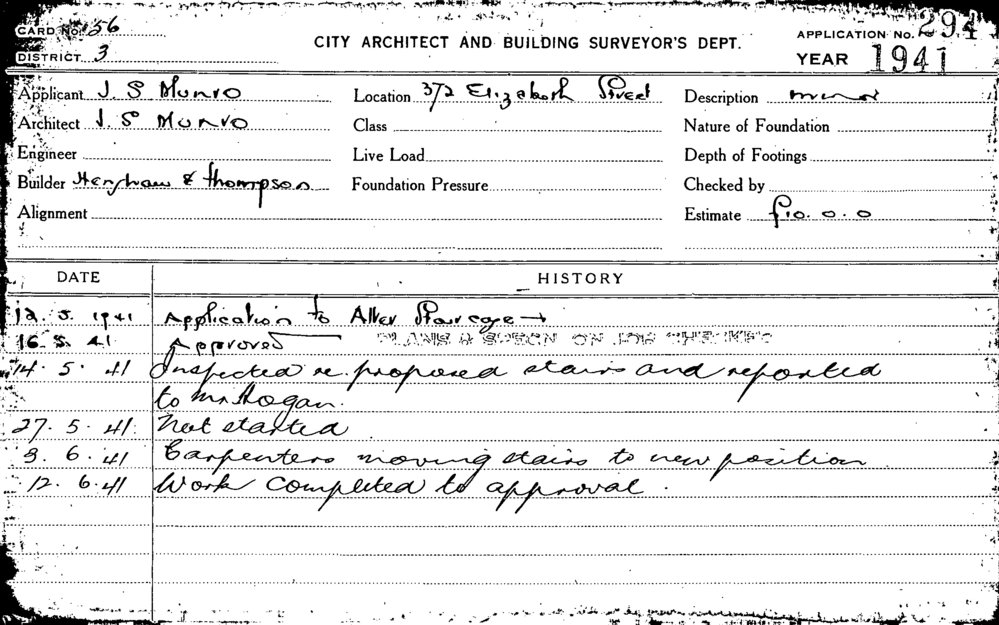 CARD No. 56
DISTRICT 3
CITY ARCHITECT AND BUILDING SURVEYOR'S DEPT.
APPLICATION No. 294
YEAR 1941
Applicant J. S Munro Location 372 Elizabeth Street Description minor
Architect J. S Munro Class Nature of Foundation
Engineer Live Load Depth of Footings
Builder Henshaw & Thompson Foundation Pressure Checked by
Alignment Estimate £10. 0. 0
DATE HISTORY
12. 5. 1941 Application to Alter Staircase
16. 5. 41 Approved PLANS & SPECN ON JOB CHECKED
14. 5. 41 Inspected re. proposed stairs and reported
to Mr Hogan.
27. 5. 41. Not started
3. 6. 41 Carpenters moving stairs to new position
12. 6. 41 Work completed to approval.